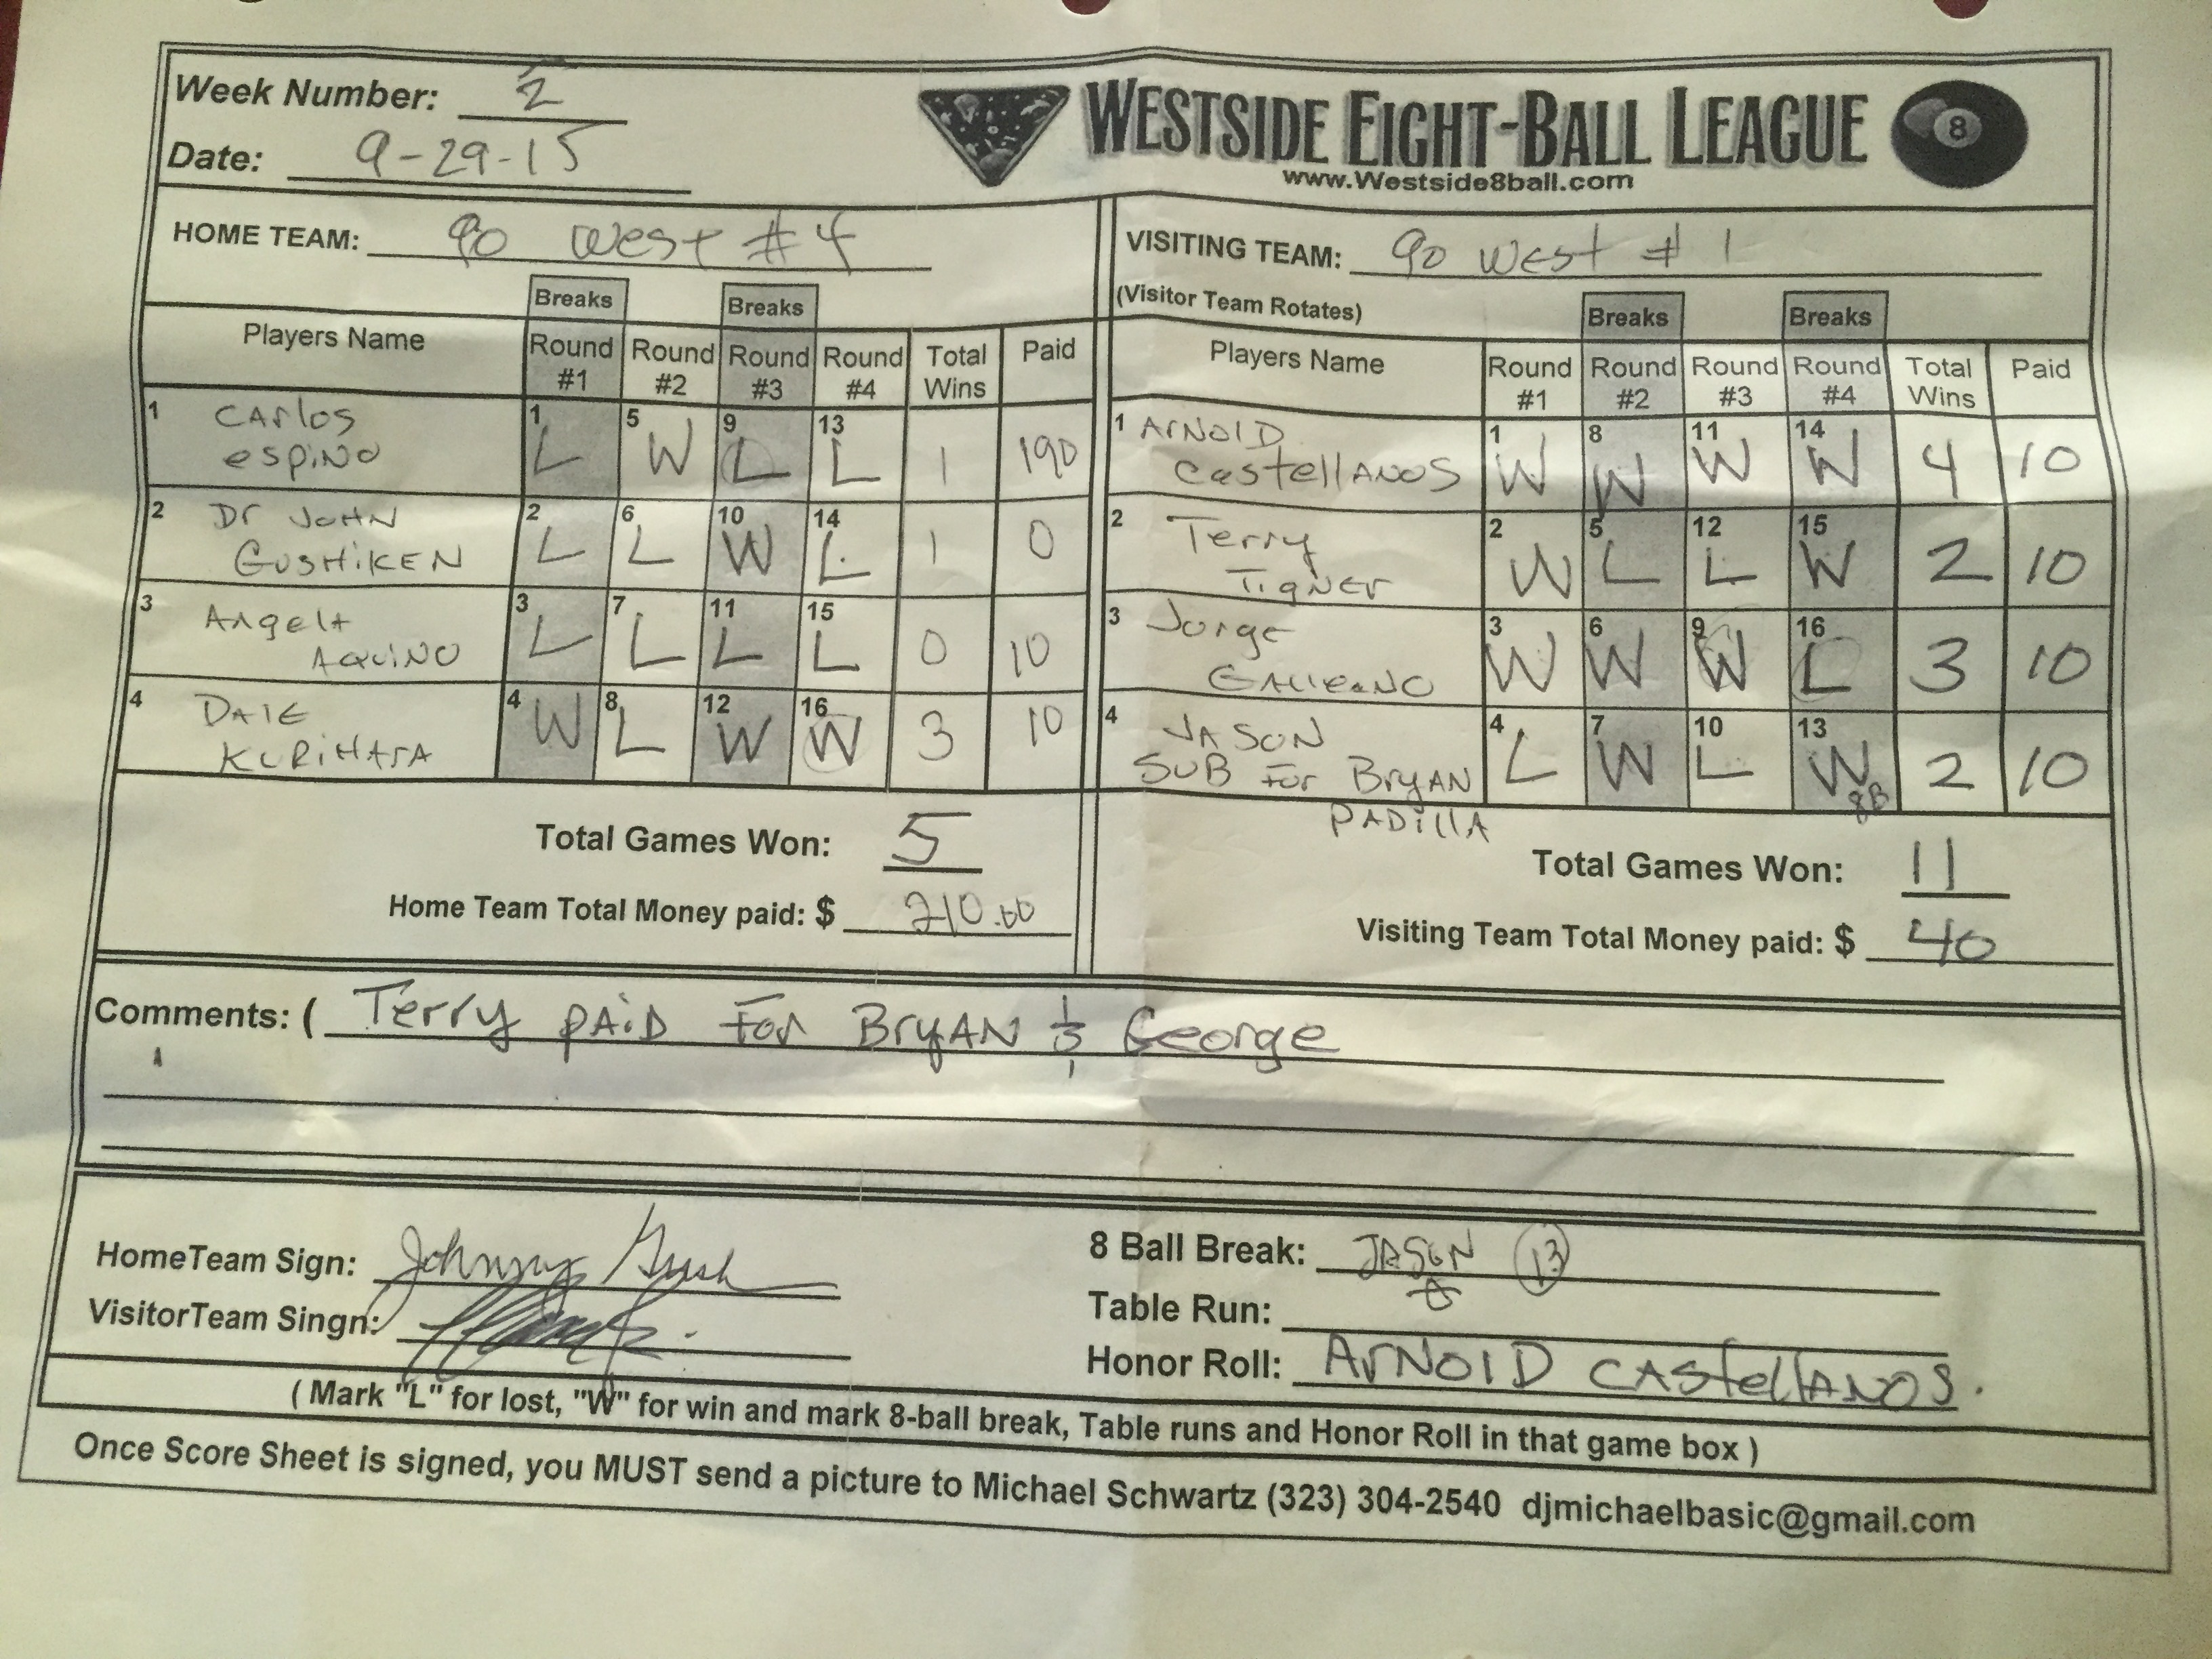 Week Number: 2
Date: 9-29-15
WESTSIDE EIGHT-BALL LEAGUE 8
www.Westside8ball.com
HOME TEAM: 90 West #4
VISITING TEAM: 90 West #1
(Visitor Team Rotates)
Breaks Breaks
Players Name Round #1 Round #2 Round #3 Round #4 Total Wins Paid
1 CArlos espiNo 1 L 5 W 9 L 13 L 1 190
2 Dr JOHN GUSHIKEN 2 L 6 L 10 W 14 L 1 0
3 AngelA AQUINO 3 L 7 L 11 L 15 L 0 10
4 DAlE KURIHARA 4 W 8 L 12 W 16 W 3 10
Total Games Won: 5
Home Team Total Money paid: $ 210.00
Breaks Breaks
Players Name Round #1 Round #2 Round #3 Round #4 Total Wins Paid
1 ArNOlD CastellANOS 1 W 8 W 11 W 14 W 4 10
2 Terry TigNEr 2 W 5 L 12 L 15 W 2 10
3 Jorge 3 W 6 W 9 W 16 L 3 10
4 JASON SUB For BryAN PADillA 4 L 7 W 10 L 13 W 8B 2 10
Total Games Won: 11
Visiting Team Total Money paid: $ 40
Comments: ( Terry pAiD For BryAN & George
HomeTeam Sign: Johnny
VisitorTeam Singn:
8 Ball Break: JASON 13
Table Run:
Honor Roll: ArNOlD CAStellANOS.
( Mark "L" for lost, "W" for win and mark 8-ball break, Table runs and Honor Roll in that game box )
Once Score Sheet is signed, you MUST send a picture to Michael Schwartz (323) 304-2540 djmichaelbasic@gmail.com